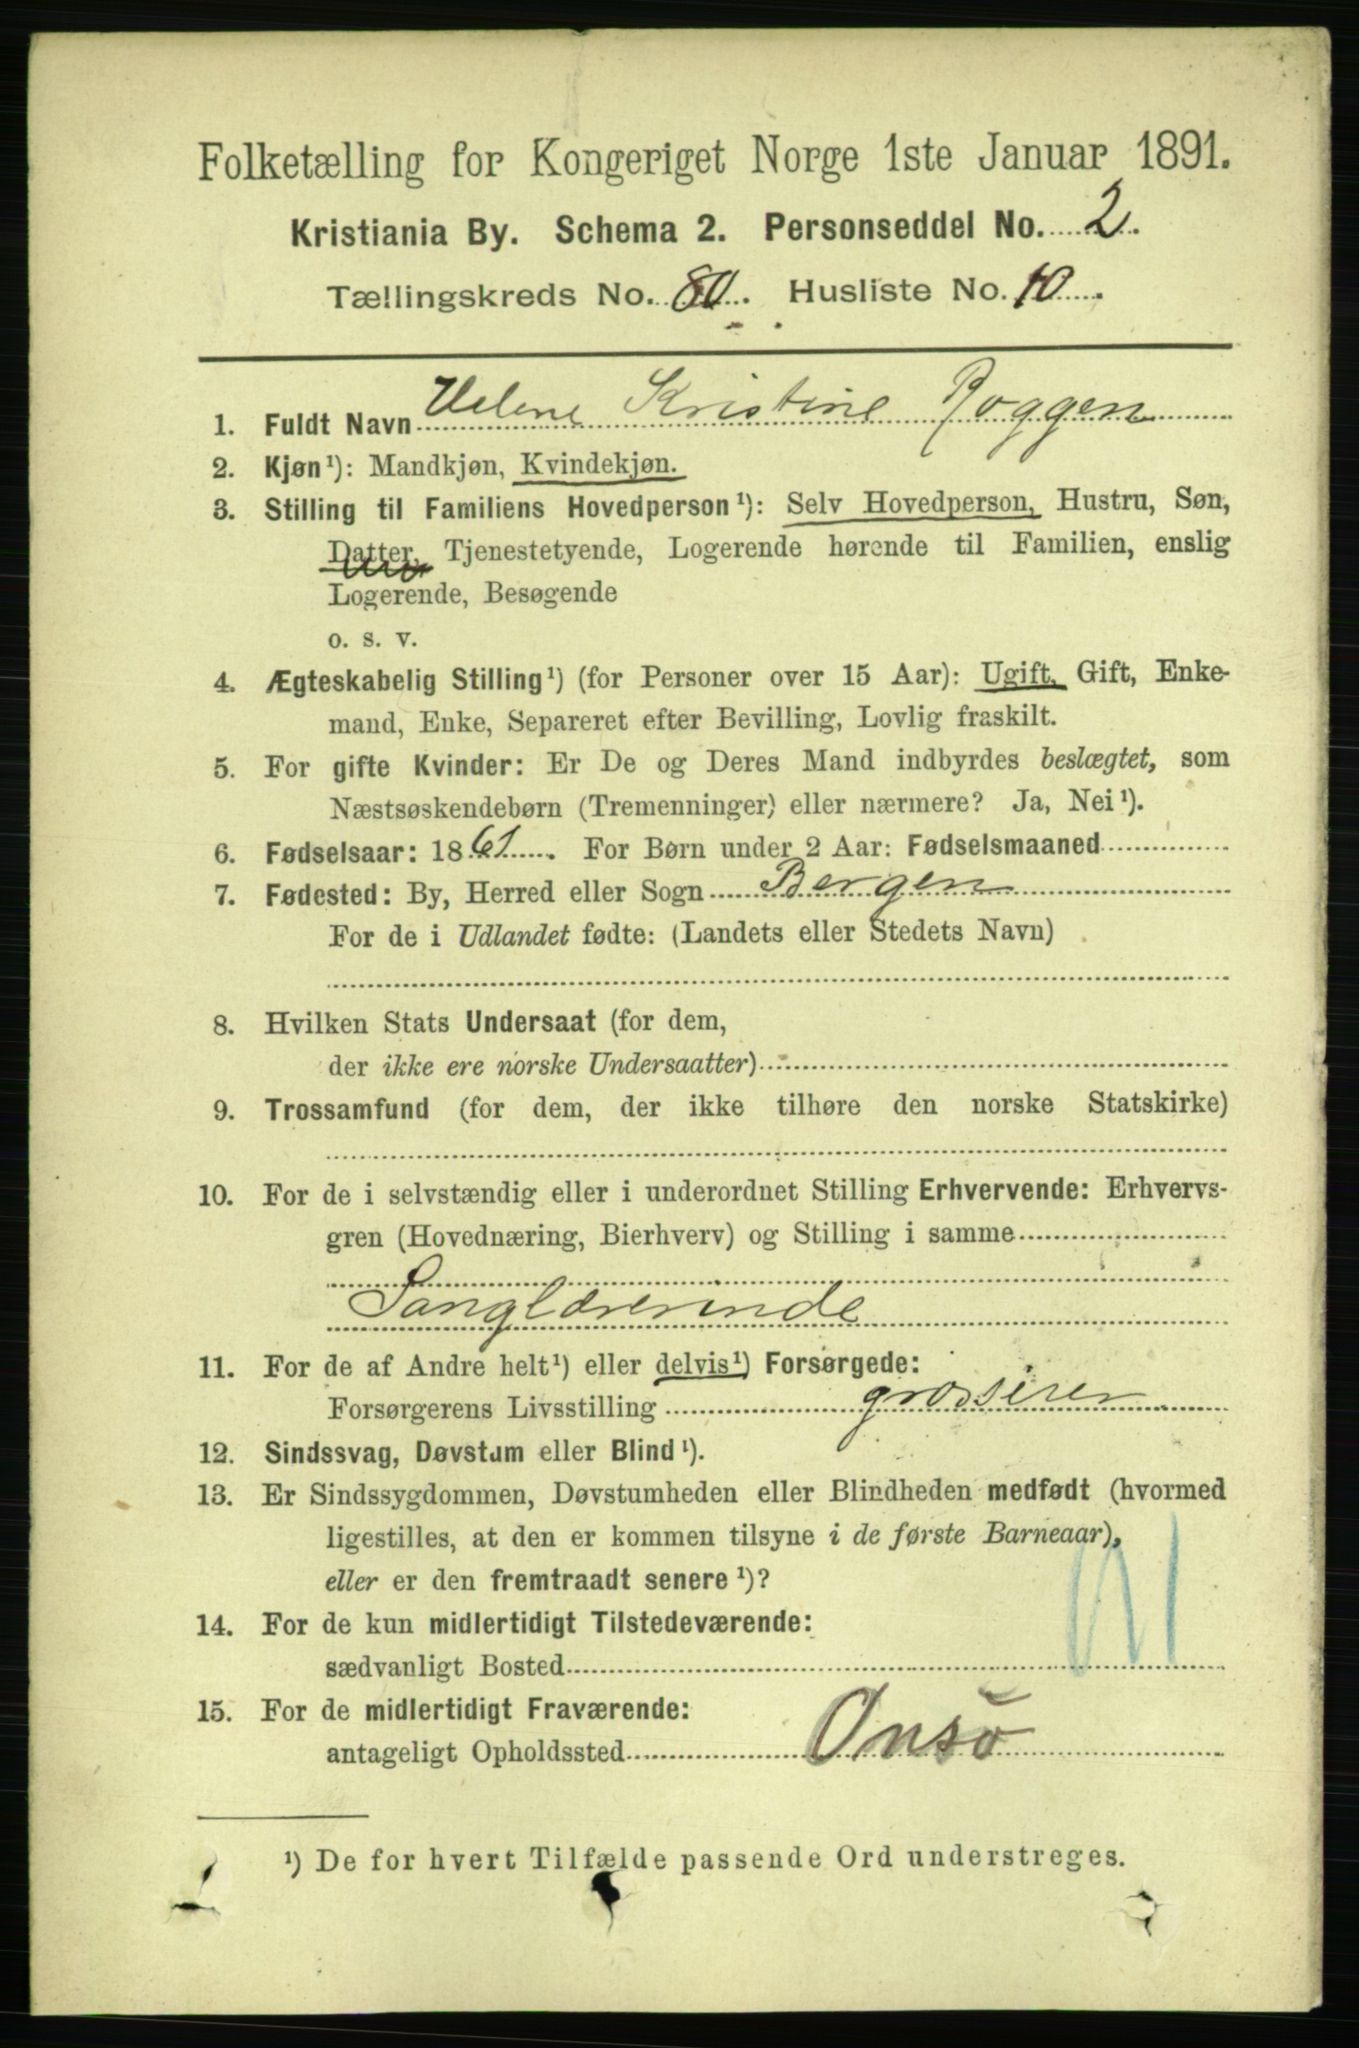 Folketælling for Kongeriget Norge 1ste Januar 1891.
Kristiania By. Schema 2. Personseddel No. 2.
Tællingskreds No. 80. Husliste No. 10.
1. Fuldt Navn Helene Kristine Roggen
2. Kjøn¹): Mandkjøn, Kvindekjøn.
3. Stilling til Familiens Hovedperson¹): Selv Hovedperson, Hustru, Søn,
Datter, Tjenestetyende, Logerende hørende til Familien, enslig
Logerende, Besøgende
o. s. v.
4. Ægteskabelig Stilling¹) (for Personer over 15 Aar): Ugift, Gift, Enke-
mand, Enke, Separeret efter Bevilling, Lovlig fraskilt.
5. For gifte Kvinder: Er De og Deres Mand indbyrdes beslægtet, som
Næstsøskendebørn (Tremenninger) eller nærmere? Ja, Nei¹).
6. Fødselsaar: 1861. For Børn under 2 Aar: Fødselsmaaned
7. Fødested: By, Herred eller Sogn Bergen
For de i Udlandet fødte: (Landets eller Stedets Navn)
8. Hvilken Stats Undersaat (for dem,
der ikke ere norske Undersaatter)
9. Trossamfund (for dem, der ikke tilhøre den norske Statskirke)
10. For de i selvstændig eller i underordnet Stilling Erhvervende: Erhvervs-
gren (Hovednæring, Bierhverv) og Stilling i samme
Sanglærerinde
11. For de af Andre helt¹) eller delvis¹) Forsørgede:
Forsørgerens Livsstilling grosserer
12. Sindssvag, Døvstum eller Blind¹).
13. Er Sindssygdommen, Døvstumheden eller Blindheden medfødt (hvormed
ligestilles, at den er kommen tilsyne i de første Barneaar),
eller er den fremtraadt senere¹)?
14. For de kun midlertidigt Tilstedeværende:
sædvanligt Bosted
15. For de midlertidigt Fraværende:
antageligt Opholdssted Onsö
¹) De for hvert Tilfælde passende Ord understreges.